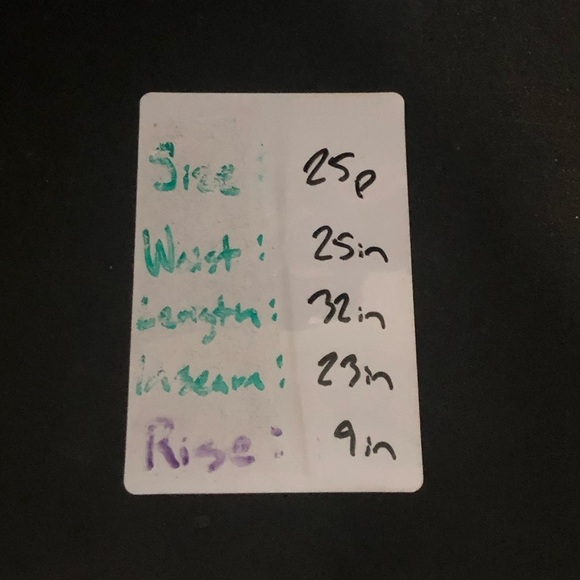 Size: 25p
Waist: 25in
Length: 32in
inseam: 23in
Rise: 9in